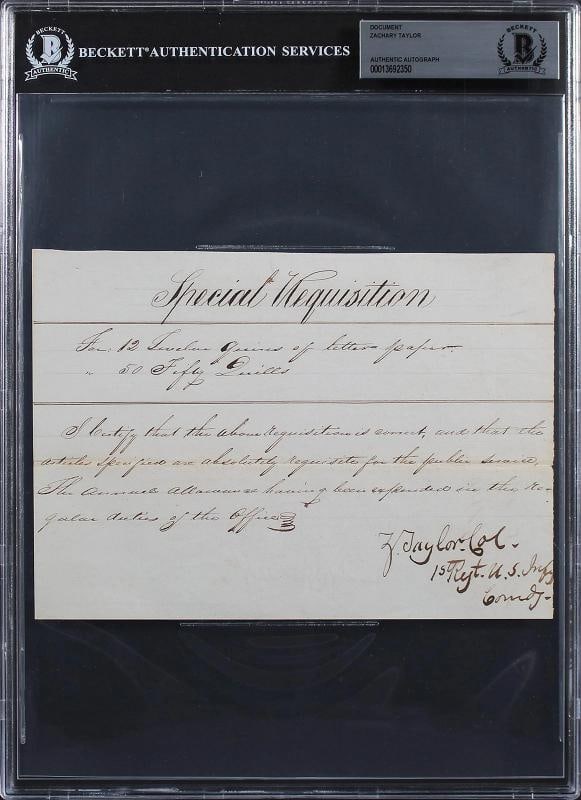 BECKETT
B
AUTHENTIC
BECKETT® AUTHENTICATION SERVICES
DOCUMENT
ZACHARY TAYLOR
AUTHENTIC AUTOGRAPH
00013692350
BECKETT
B
AUTHENTIC
Special Requisition
For 12 Twelve quires of letter paper.
" 50 Fifty Quills
I Certify that the above requisition is correct, and that the
articles specified are absolutely requisite for the public service,
The annual allowance having been expended in the re-
gular duties of the Office
Z. Taylor Col.
1st Regt. U.S. Infy
Comdg.